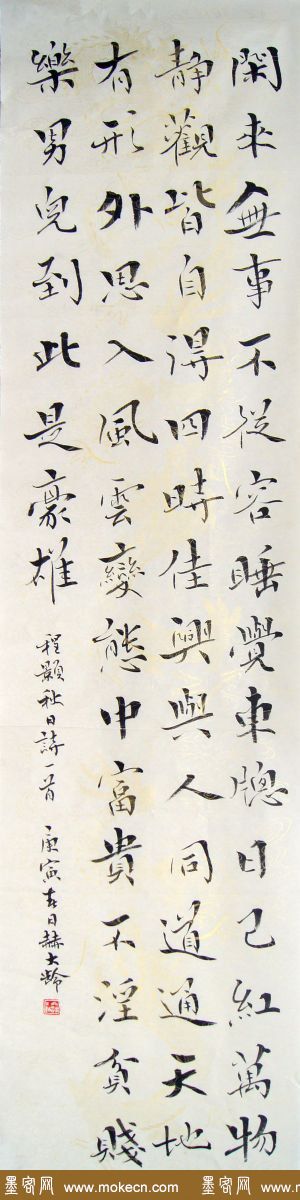 閑來無事不從容睡覺東窗日已紅萬物
静觀皆自得四時佳興與人同道通天地
有形外思入風雲變態中富貴不淫貧賤
樂男兒到此是豪雄
程顥秋日詩一首
庚寅春日赫大齡
墨客网 www.mokecn.com 墨客网 www.m